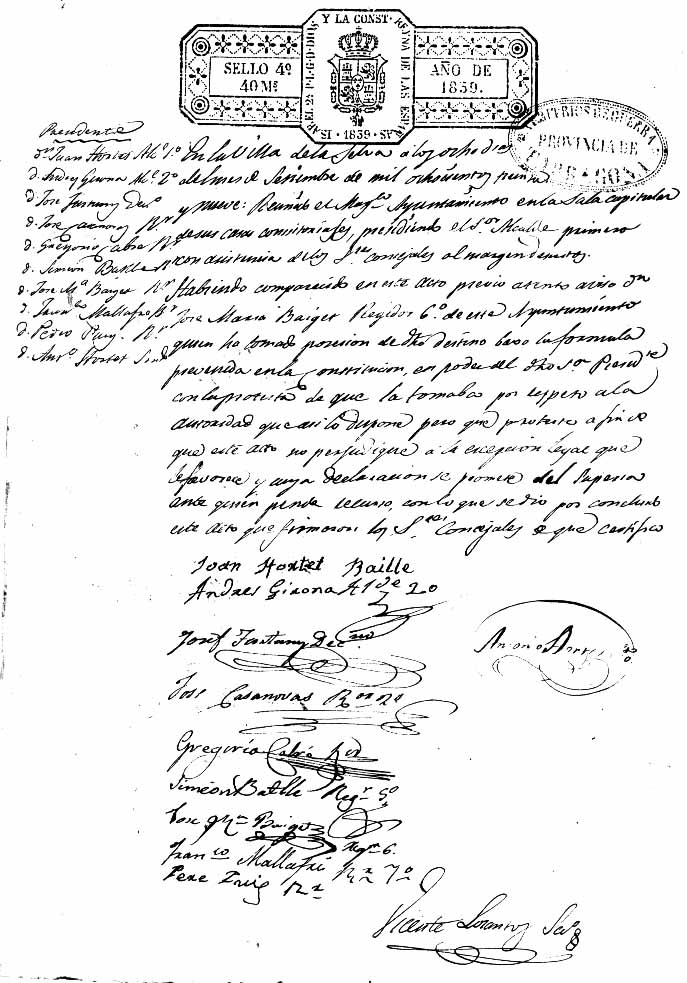 Y LA CONST. REYNA DE LAS ESP
SELLO 4º
40 Ms
AÑO DE
1839.
1839
ARBITRIOS DE GUERRA
PROVINCIA DE
TARRAGONA
Presidente
Dn Juan Hortet Ale. 1º
d. Andrs Girona Ale. 2º
d. Jose Fortuny Decº
d. Jose Casanovas Rr
d. Gregorio Cabre Rr
d. Simeon Batlle Rr
d. Jose Mª Baiget Rr
d. Franco Mallafre Rr
d. Pedro Puig Rr
d. Anto Hortet Sindo
En la Villa de la Selva á los ocho dias
del mes de Setiembre de mil ochocientos treinta
y nueve: Reunido el Magco Ayuntamiento en la Sala capitular
de sus casas consistoriales, presidiendo el Sor Alcalde primero
con asistencia de los Sres Concejales al margen descritos.
Habiendo comparecido en este acto previo atento aviso Dn
Jose Maria Baiget Regidor 6º de este Ayuntamiento
quien ha tomado posesion de dho destino bajo la formula
prevenida en la Constitucion, en poder del dho Sor Presidte
con la protesta de que la tomaba por respeto a la
autoridad que asi lo dispone pero que protesta a fin de
que este acto no perjudique á la escepcion legal que
le favorece y cuya declaracion se promete del Superior
ante quien pende recurso, con lo que se dio por concluido
este acto que firmaron los Sres Concejales de que certifico
Joan Hortet Baille
Andres Girona Alde 2o
Josef Fortuny Decno
Antonio
Jose Casanovas Ror 2o
Gregorio Cabré Rdr
Simeon Batlle Regr 5º
Jose Ma Baiget Regr 6.
Franco Mallafré Rr 7º
Pere Puig Rr
Vicente Lorenzo Secº